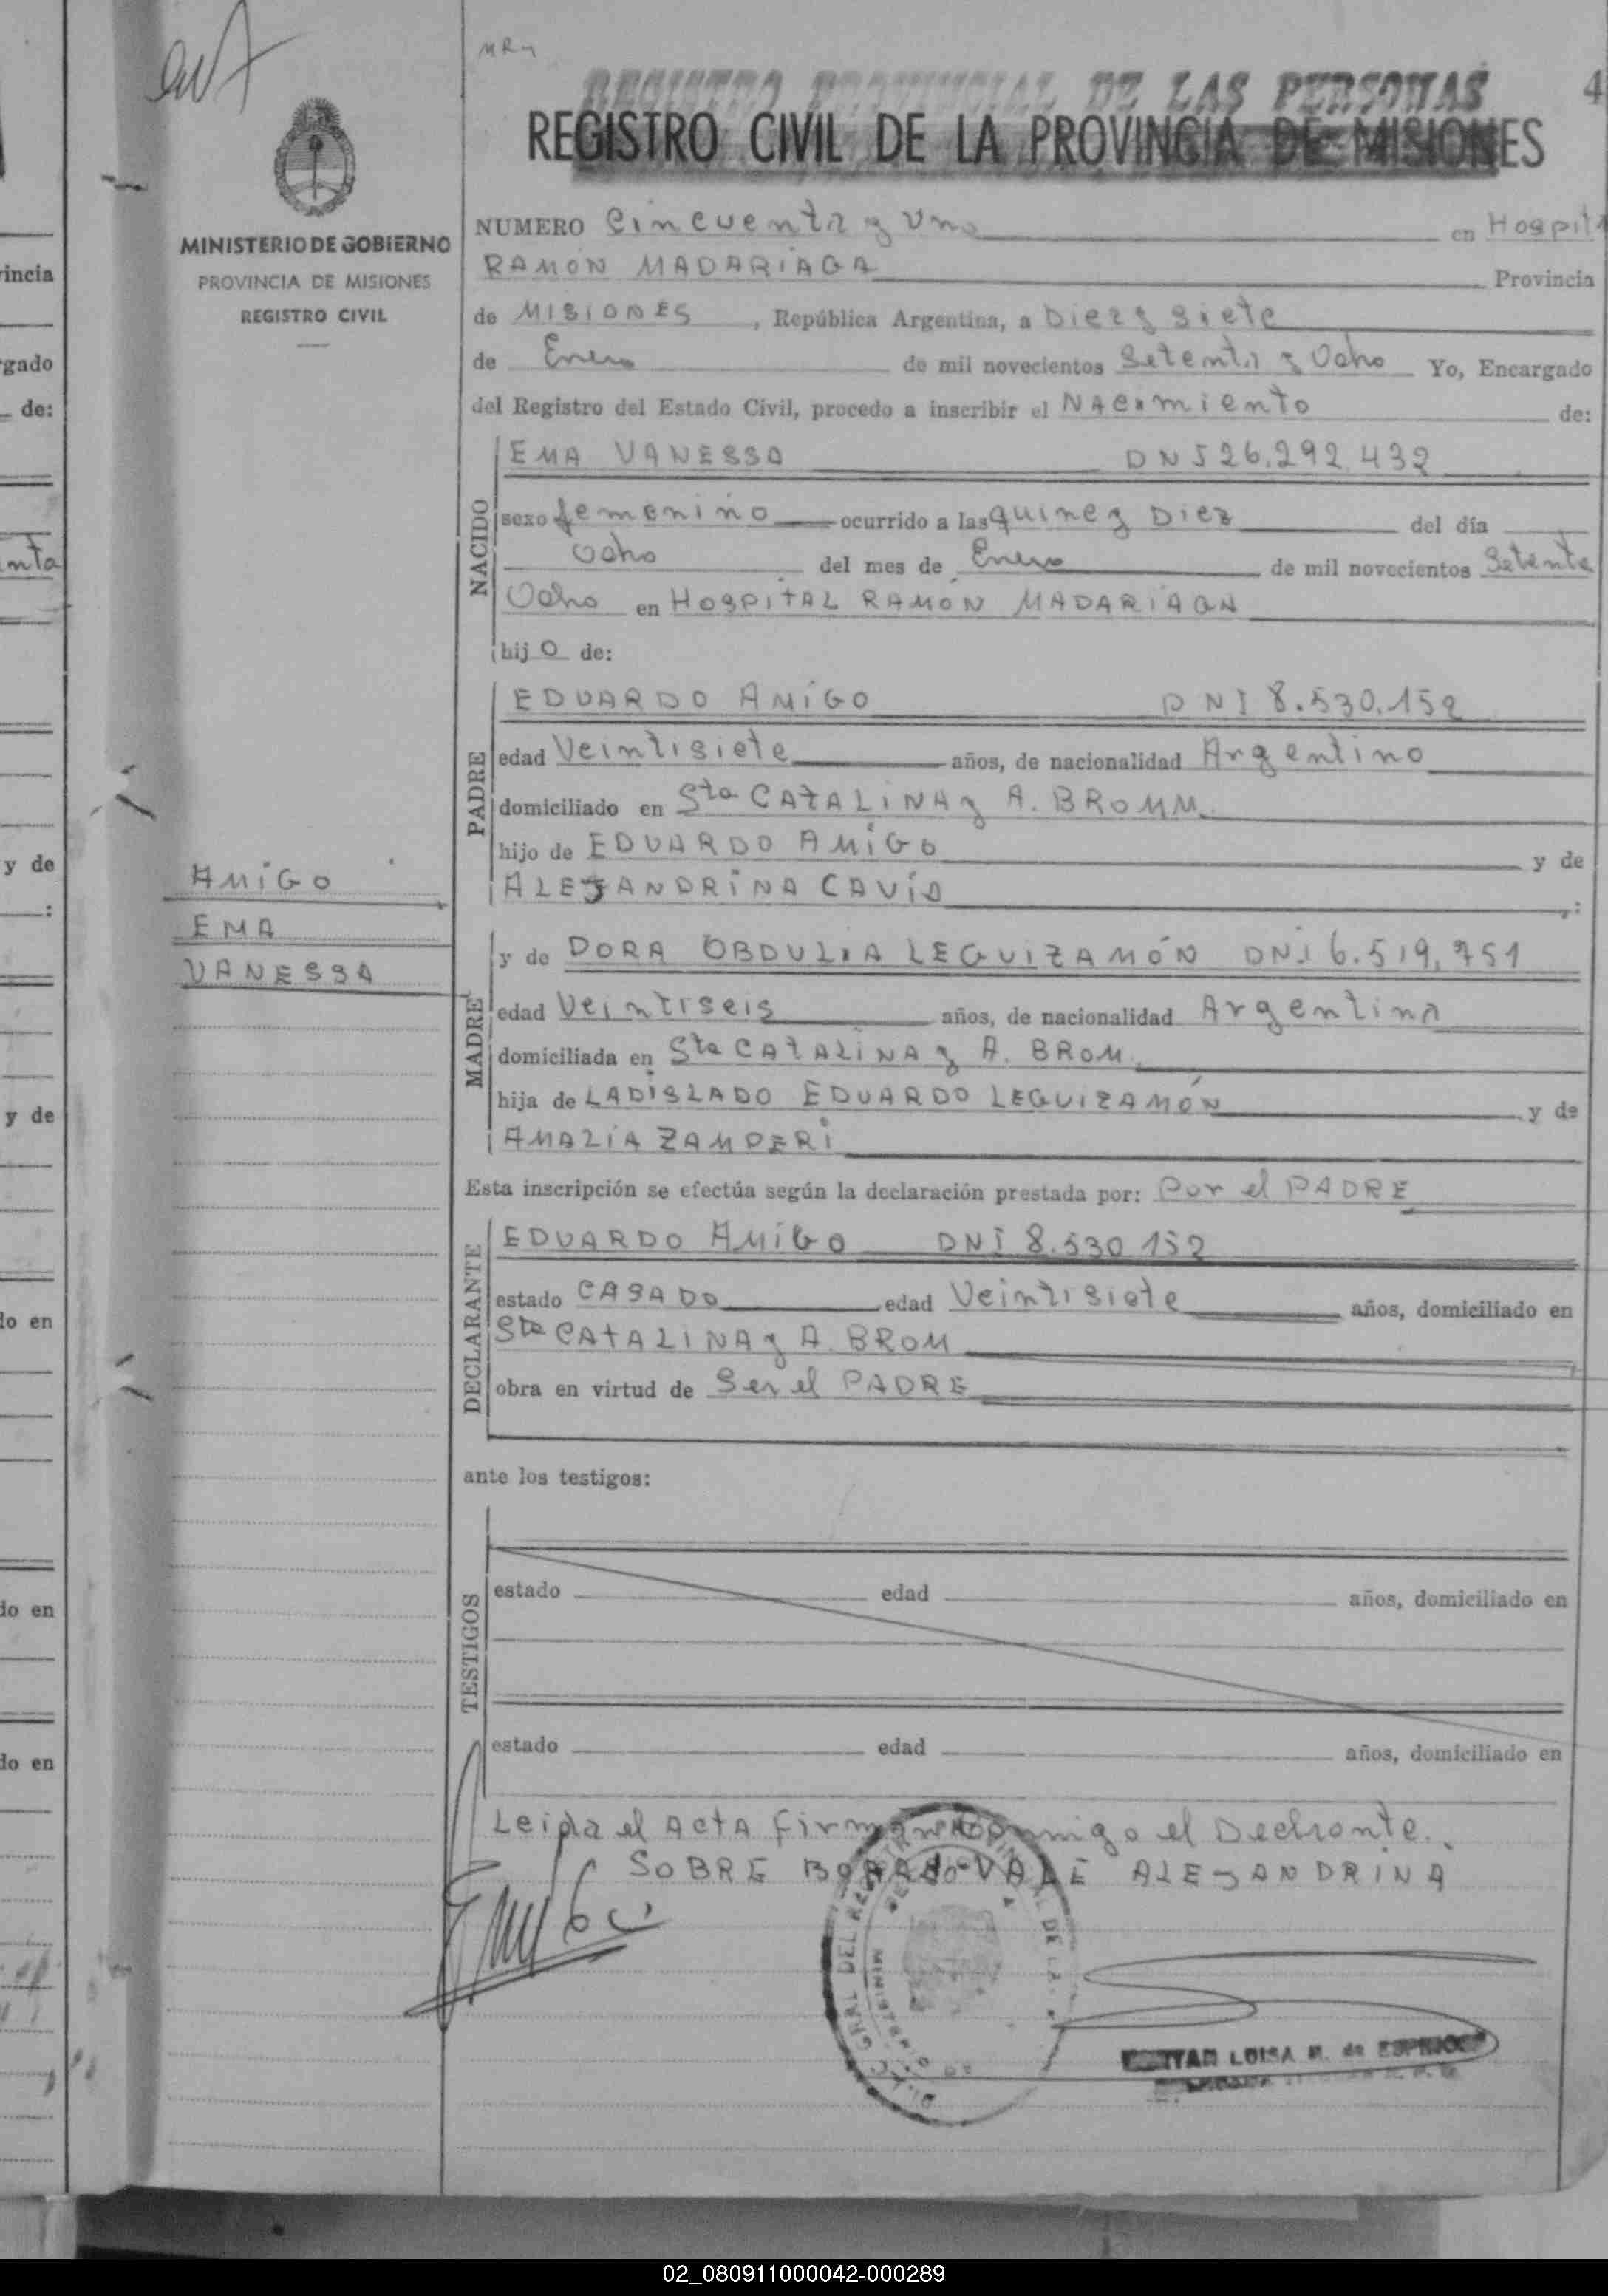 MINISTERIO DE GOBIERNO
PROVINCIA DE MISIONES
REGISTRO CIVIL
AMIGO
EMA
VANESSA
REGISTRO PROVINCIAL DE LAS PERSONAS 4
REGISTRO CIVIL DE LA PROVINCIA DE MISIONES
NUMERO Cincuenta y Uno en Hospit
RAMON MADARIAGA Provincia
de MISIONES , República Argentina, a Diez y Siete
de Enero de mil novecientos Setenta y Ocho Yo, Encargado
del Registro del Estado Civil, procedo a inscribir el NAcimiento de:
NACIDO
EMA VANESSA DNI 26.292.432
sexo femenino ocurrido a las quince y Diez del día
Ocho del mes de Enero de mil novecientos Setenta
Ocho en HOSPITAL RAMON MADARIAGA
hij o de:
PADRE
EDUARDO AMIGO DNI 8.530.152
edad Veintisiete años, de nacionalidad Argentino
domiciliado en Sta CATALINA y A. BROMM.
hijo de EDUARDO AMIGO y de
ALEJANDRINA CAVIA :
MADRE
y de DORA OBDULIA LEGUIZAMÓN DNI 6.519.751
edad Veintiseis años, de nacionalidad Argentina
domiciliada en Sta CATALINA y A. BROM.
hija de LADISLADO EDUARDO LEGUIZAMÓN y de
AMALIA ZAMPERI
Esta inscripción se efectúa según la declaración prestada por: Por el PADRE
DECLARANTE
EDUARDO AMIGO DNI 8.530.152
estado CASADO edad Veintisiete años, domiciliado en
Sta CATALINA y A. BROM
obra en virtud de Ser el PADRE
ante los testigos:
TESTIGOS
estado edad años, domiciliado en
estado edad años, domiciliado en
Leida el ActA firman conmigo el Declronte.
SOBRE BORRADO-VALE ALEJANDRINA
LUISA M. de ESPINOSA
incia
gado
de:
nta
y de
:
y de
do en
do en
do en
02_080911000042-000289